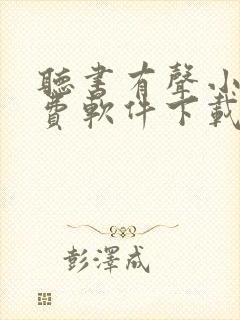 聽書有聲小
費軟件下載
彭澤成